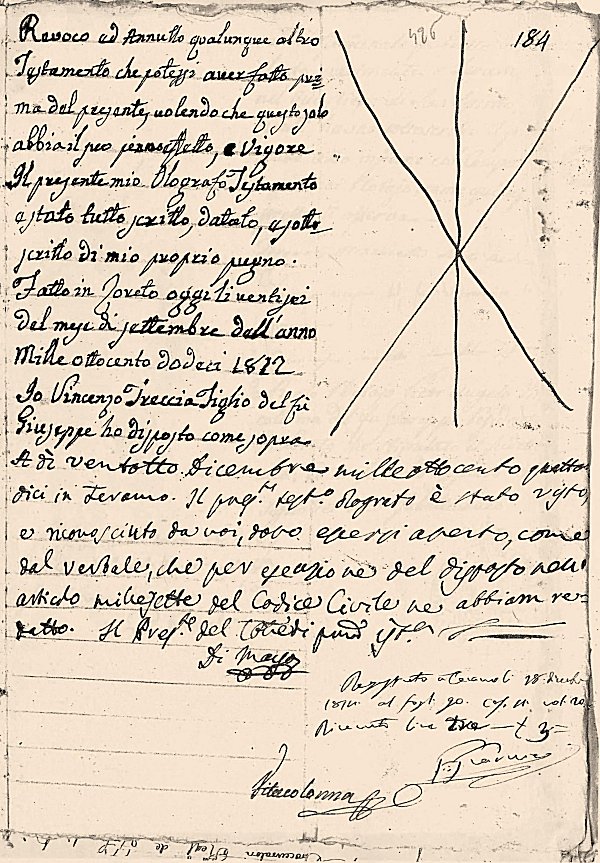 426 184
Revoco ed Annullo qualunque altro
Testamento che potessi aver fatto pri=
ma del presente, volendo che questo solo
abbia il suo pieno effetto, e Vigore
Il presente mio Olografo Testamento
e stato tutto scritto, datato, e sotto=
scritto di mio proprio pugno.
Fatto in Loreto oggi li ventisei
del mese di settembre dell'anno
Mille ottocento dodeci 1812
Io Vincenzo Treccia Figlio del fù
Giuseppe ho disposto come sopra
A dì ventotto Dicembre mille ottocento quatto
dici in Teramo. Il pres.te Test.o Olografo è stato visto,
e riconosciuto da noi, dopo essersi aperto, come
dal verbale, che per esecuzione del disposto nell'
articolo millesette del Codice Civile ne abbiam re=
datto. Il Pres.te del
Di
Registrato a Teramo li 28 dicembre
1814 al fogl. 90. cas.
Ricevuto lire tre
Vitacolonna